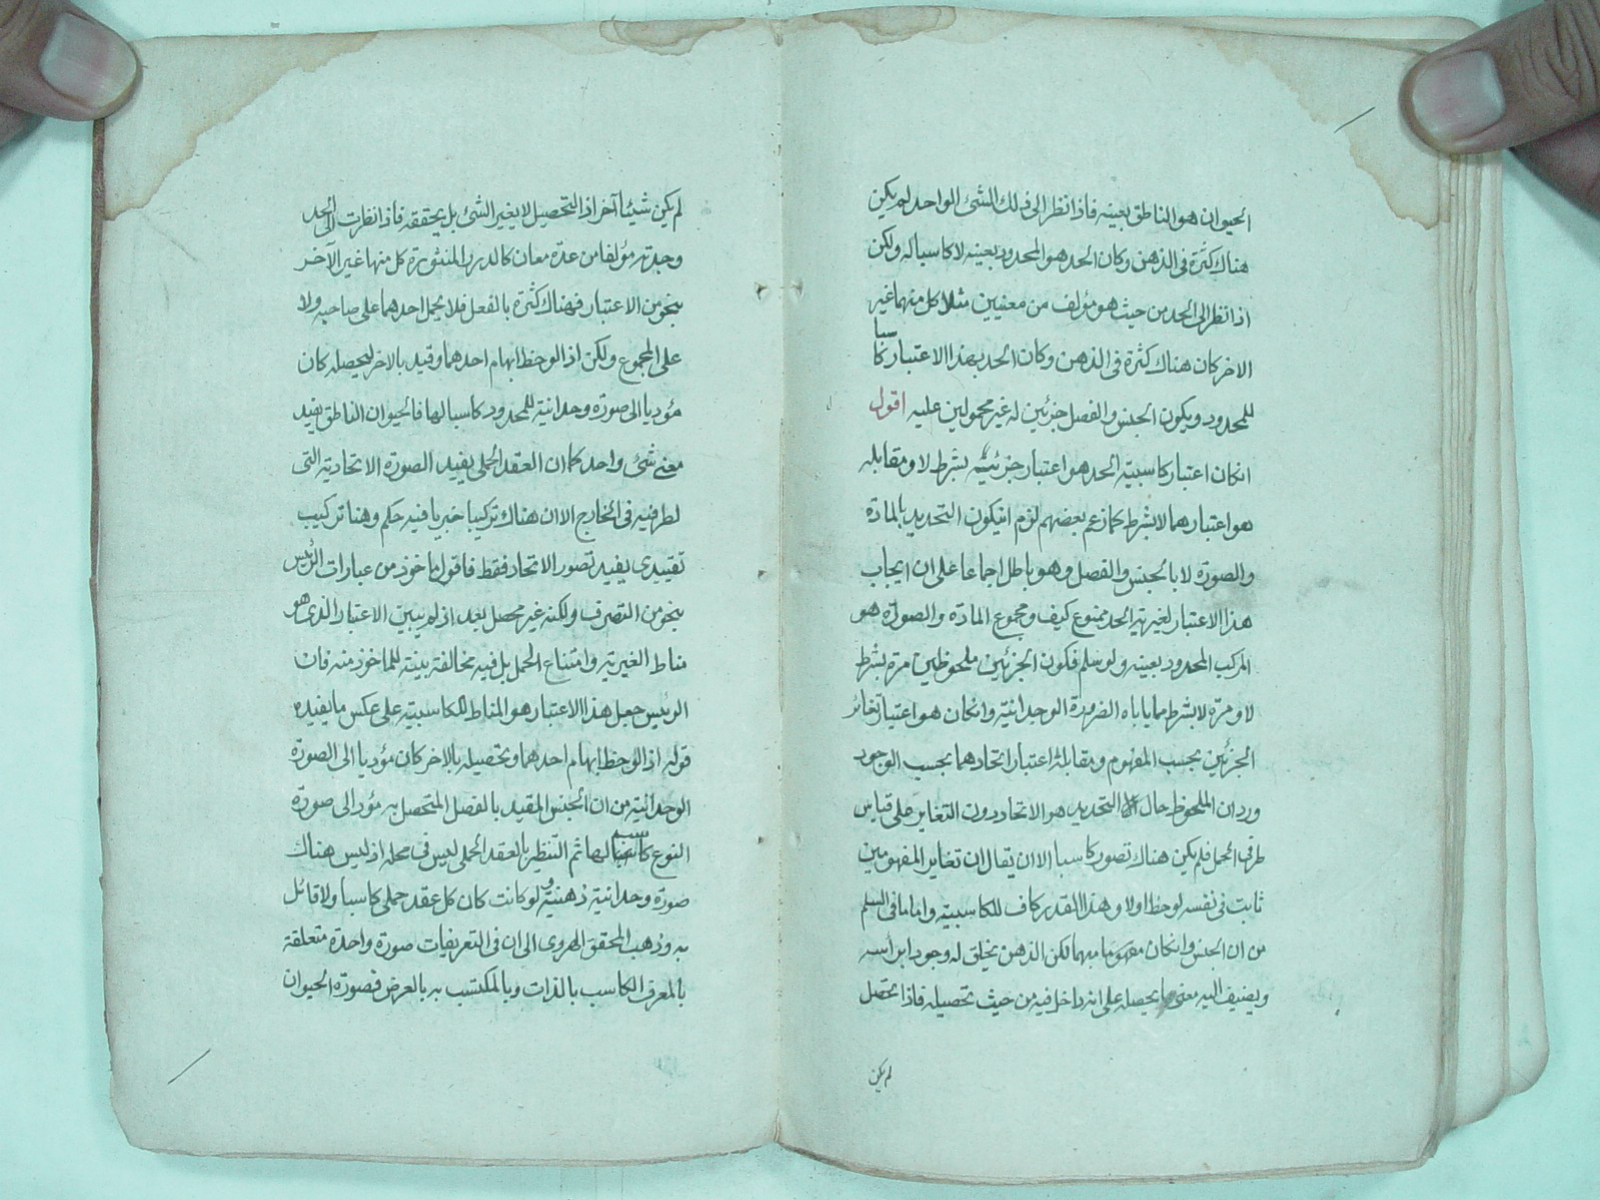 الحيوان هو الناطق بعينه فاذا نظر الى ذلك الشئ الواحد لم يكن
هناك كثرة فى الذهن وكان الحد هو المحدود بعينه لا كاسبا له ولكن
اذا نظر الى الحد من حيث هو مؤلف من معنيين مثلا كل منهما غير
الاخر كان هناك كثرة فى الذهن وكان الحد بهذا الاعتبار كاسبا
للمحدود ويكون الجنس والفصل جزئين له غير محمولين عليه اقول
انكان اعتبار كاسبية الحد هو اعتبار جزئيته بشرط لا ومقابله
هو اعتبارهما لا بشرط كما زعم بعضهم لزم ان يكون التحديد بالمادة
والصورة لا بالجنس والفصل وهو باطل اجماعا على ان ايجاب
هذا الاعتبار لغيرية الحد ممنوع كيف ومجموع المادة والصورة هو
المركب المحدود بعينه ولو سلم فكون الجزئين ملحوظين مرة بشرط
لا ومرة لا بشرط مما ياباه الضرورة الوجدانية وانكان هو اعتبار تغائر
الجزئين بحسب المفهوم ومقابلة اعتبار اتحادهما بحسب الوجود
ورد ان الملحوظ حال التحديد هو الاتحاد دون التغاير على قياس
طرفى الحمل فلم يكن هناك تصور كاسبا الا ان يقال ان تغاير المفهومين
ثابت فى نفسه لوحظ اولا وهذا القدر كاف للكاسبية واما ما فى السلم
من ان الجنس وانكان مفهوما مبهما لكن الذهن يخلق له وجودا براسه
ويضيف اليه معنى ما يحصله على انه داخل فيه من حيث تحصيله فاذا تحصل
لم يكن
لم يكن شيئا آخر اذ التحصيل لا يغير الشئ بل يحققه فاذا نظرت الى الحد
وجدته مؤلفا من عدة معان كالدرر المنثورة كل منها غير الآخر
بنحو من الاعتبار فهناك كثرة بالفعل فلا يحمل احدهما على صاحبه ولا
على المجموع ولكن اذا لوحظ ابهام احدهما وقيد بالاخر ليحصله كان
مؤديا الى صورة وحدانية للمحدود كاسبا لها فالحيوان الناطق يفيد
معنى شئ واحد كما ان العقد الحملى يفيد الصورة الاتحادية التى
لطرفيه فى الخارج الا ان هناك تركيبا خبريا فيه حكم وهنا تركيب
تقييدى يفيد تصور الاتحاد فقط فاقول ماخوذ من عبارات الرئيس
بنحو من التصرف ولكنه غير محصل بعد اذ لم يبين الاعتبار الذى هو
مناط الغيرية وامتناع الحمل بل فيه مخالفة بينة للماخوذ منه فان
الرئيس جعل هذا الاعتبار هو المناط للكاسبية على عكس ما يفيده
قوله اذا لوحظ ابهام احدهما وتحصيله بالاخر كان مؤديا الى الصورة
الوحدانية من ان الجنس المقيد بالفصل المتحصل به مؤد الى صورة
النوع كاسب لها ثم التنظير بالعقد الحملى ليس فى محله اذ ليس هناك
صورة وحدانية ذهنية ولو كانت كان كل عقد حملى كاسبا ولا قائل
به وذهب المحقق الهروى الى ان فى التعريفات صورة واحدة متعلقة
بالمعرف الكاسب بالذات وبالمكتسب به بالعرض فصورة الحيوان